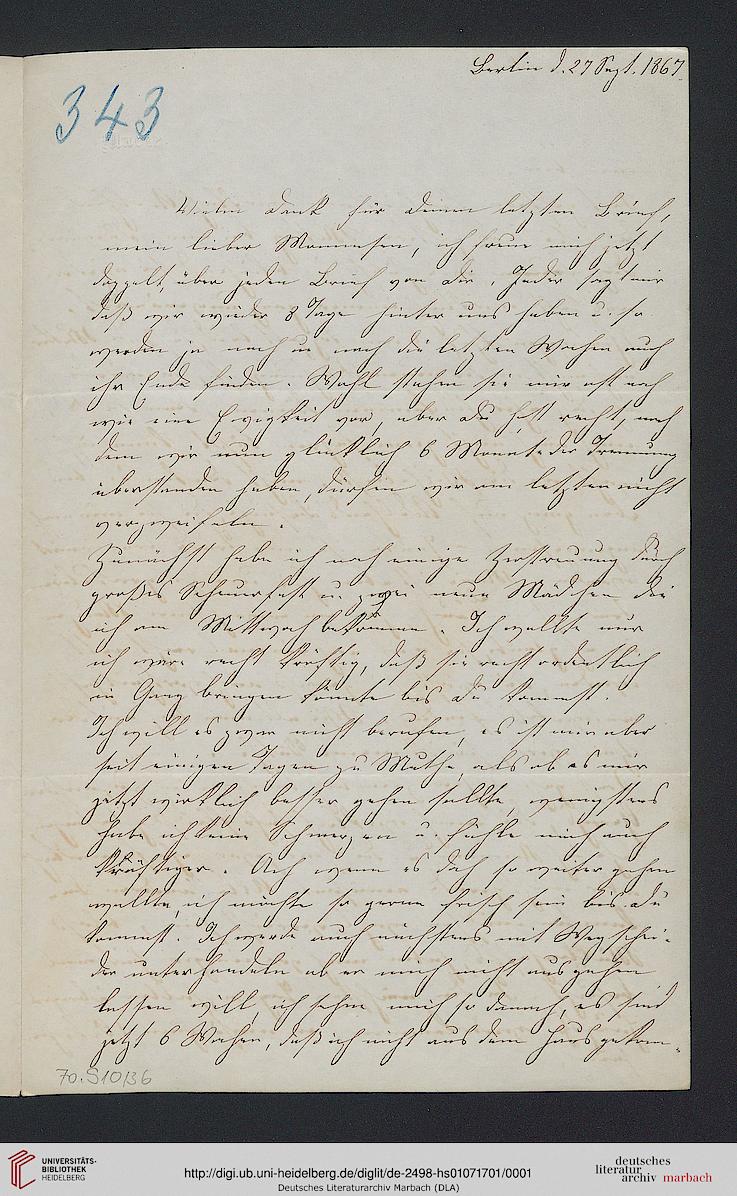 Berlin d. 27 Sept. 1867
343
Vielen Dank für deinen letzten Brief,
mein lieber Mommsen, ich freue mich jetzt
doppelt, über jeden Brief von dir. Jeder sagt mir
daß wir wieder 8 Tage hinter uns haben u. so
werden ja nach u. nach die letzten Wochen auch
ihr Ende finden. Wohl stehen sie mir oft noch
wie eine Ewigkeit vor, aber du hast recht, nach
dem wir nun glücklich 6 Monate der Trennung
überstanden haben, dürfen wir am letzten nicht
verzweifeln.
Zunächst habe ich noch einige Zerstreuung durch
großes Scheuerfest u. zwei neue Mädchen die
ich am Mittwoch bekomme. Ich wollte nur
ich wäre recht kräftig, daß sie recht ordentlich
in Gang bringen könnte bis du kommst.
Ich will es zwar nicht berufen, es ist mir aber
seit einigen Tagen zu Muthe, als ob es mir
jetzt wirklich besser gehen sollte, wenigstens
habe ich keine Schmerzen u. fühle mich auch
kräftiger. Ach wenn es doch so weiter gehen
wollte, ich möchte so gerne frisch sein bis du
kommst. Ich werde auch nächstens mit Wegschei-
der unterhandeln ob er mich nicht ausgehen
lassen will, ich sehne mich so danach, es sind
jetzt 6 Wochen, daß ich nicht aus dem Haus gekom-
70.S10/36
UNIVERSITÄTS-
BIBLIOTHEK
HEIDELBERG
http://digi.ub.uni-heidelberg.de/diglit/de-2498-hs01071701/0001
Deutsches Literaturarchiv Marbach (DLA)
deutsches
literatur
archiv marbach